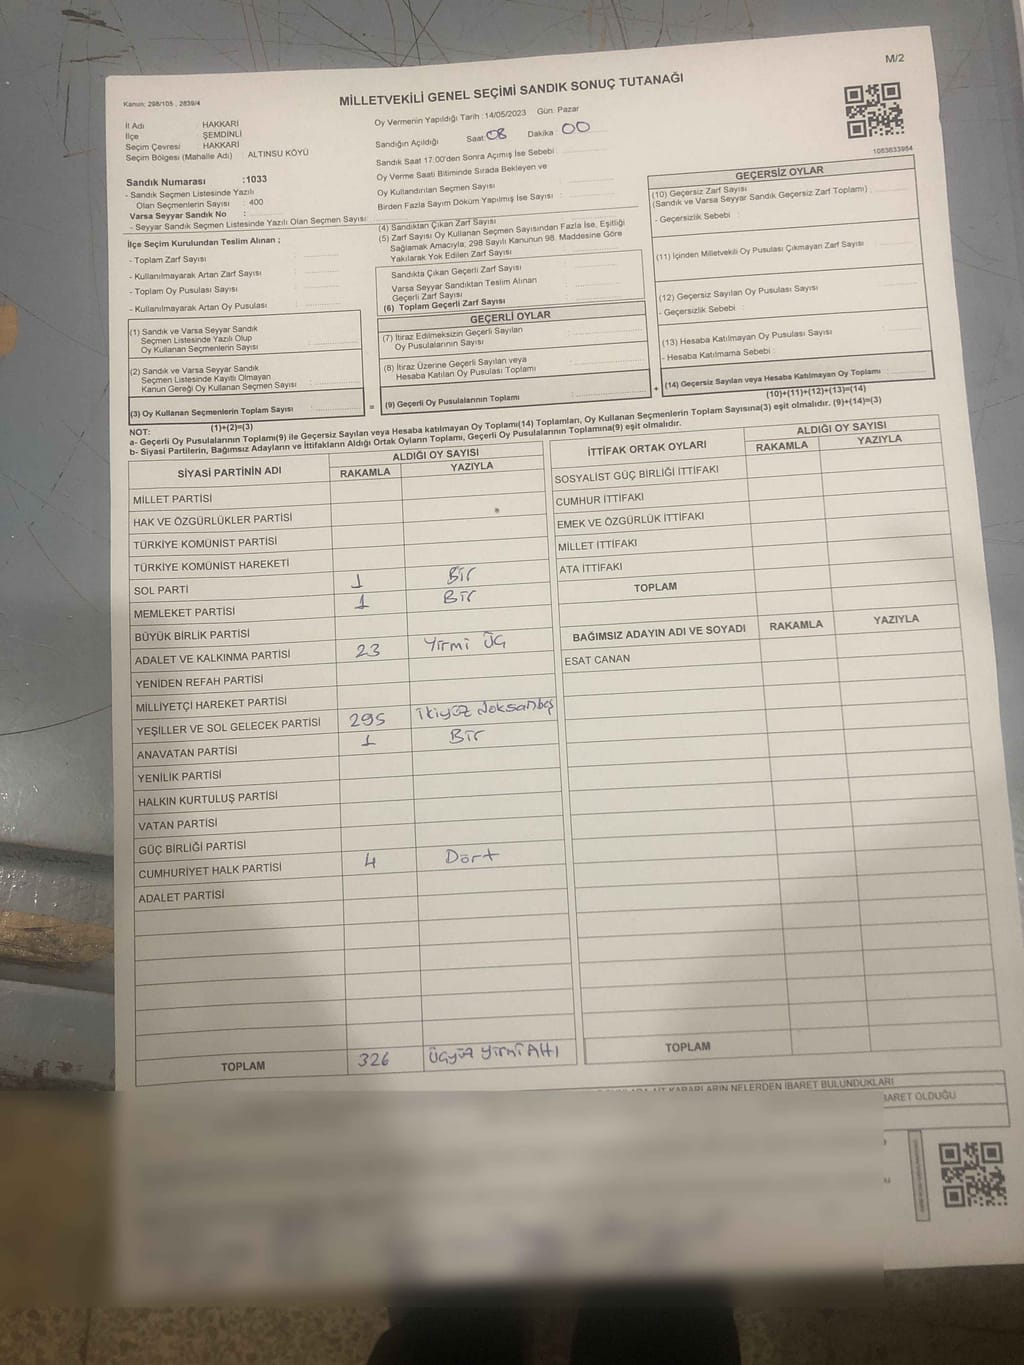 M/2
Kanun: 298/105 , 2839/4
MİLLETVEKİLİ GENEL SEÇİMİ SANDIK SONUÇ TUTANAĞI
İl Adı : HAKKARİ
İlçe : ŞEMDİNLİ
Seçim Çevresi : HAKKARİ
Seçim Bölgesi (Mahalle Adı) : ALTINSU KÖYÜ
Oy Vermenin Yapıldığı Tarih :14/05/2023 Gün: Pazar
Sandığın Açıldığı Saat: 08 Dakika: 00
Sandık Saat 17:00'den Sonra Açımış İse Sebebi :
Oy Verme Saati Bitiminde Sırada Bekleyen ve
Oy Kullandırılan Seçmen Sayısı :
Birden Fazla Sayım Döküm Yapılmış İse Sayısı :
1083633984
Sandık Numarası :1033
- Sandık Seçmen Listesinde Yazılı
Olan Seçmenlerin Sayısı : 400
Varsa Seyyar Sandık No :
- Seyyar Sandık Seçmen Listesinde Yazılı Olan Seçmen Sayısı:
İlçe Seçim Kurulundan Teslim Alınan ;
- Toplam Zarf Sayısı :
- Kullanılmayarak Artan Zarf Sayısı :
- Toplam Oy Pusulası Sayısı :
- Kullanılmayarak Artan Oy Pusulası :
(1) Sandık ve Varsa Seyyar Sandık
Seçmen Listesinde Yazılı Olup
Oy Kullanan Seçmenlerin Sayısı :
(2) Sandık ve Varsa Seyyar Sandık
Seçmen Listesinde Kayıtlı Olmayan
Kanun Gereği Oy Kullanan Seçmen Sayısı :
(3) Oy Kullanan Seçmenlerin Toplam Sayısı :
(1)+(2)=(3)
(4) Sandıktan Çıkan Zarf Sayısı :
(5) Zarf Sayısı Oy Kullanan Seçmen Sayısından Fazla İse, Eşitliği
Sağlamak Amacıyla, 298 Sayılı Kanunun 98. Maddesine Göre
Yakılarak Yok Edilen Zarf Sayısı :
Sandıkta Çıkan Geçerli Zarf Sayısı :
Varsa Seyyar Sandıktan Teslim Alınan
Geçerli Zarf Sayısı :
(6) Toplam Geçerli Zarf Sayısı :
GEÇERLİ OYLAR
(7) İtiraz Edilmeksizin Geçerli Sayılan
Oy Pusulasının Sayısı :
(8) İtiraz Üzerine Geçerli Sayılan veya
Hesaba Katılan Oy Pusulası Toplamı :
= (9) Geçerli Oy Pusulalarının Toplamı :
GEÇERSİZ OYLAR
(10) Geçersiz Zarf Sayısı
(Sandık ve Varsa Seyyar Sandık Geçersiz Zarf Toplamı) :
- Geçersizlik Sebebi :
(11) İçinden Milletvekili Oy Pusulası Çıkmayan Zarf Sayısı :
(12) Geçersiz Sayılan Oy Pusulası Sayısı :
- Geçersizlik Sebebi :
(13) Hesaba Katılmayan Oy Pusulası Sayısı :
- Hesaba Katılmama Sebebi :
+ (14) Geçersiz Sayılan veya Hesaba Katılmayan Oy Toplamı :
(10)+(11)+(12)+(13)=(14)
NOT:
a- Geçerli Oy Pusulalarının Toplamı(9) ile Geçersiz Sayılan veya Hesaba katılmayan Oy Toplamı(14) Toplamları, Oy Kullanan Seçmenlerin Toplam Sayısına(3) eşit olmalıdır. (9)+(14)=(3)
b- Siyasi Partilerin, Bağımsız Adayların ve İttifakların Aldığı Ortak Oyların Toplamı, Geçerli Oy Pusulalarının Toplamına(9) eşit olmalıdır.
SİYASİ PARTİNİN ADI ALDIĞI OY SAYISI
RAKAMLA YAZIYLA
MİLLET PARTİSİ
HAK VE ÖZGÜRLÜKLER PARTİSİ
TÜRKİYE KOMÜNİST PARTİSİ
TÜRKİYE KOMÜNİST HAREKETİ
SOL PARTİ 1 Bir
MEMLEKET PARTİSİ 1 Bir
BÜYÜK BİRLİK PARTİSİ
ADALET VE KALKINMA PARTİSİ 23 Yirmi Üç
YENİDEN REFAH PARTİSİ
MİLLİYETÇİ HAREKET PARTİSİ
YEŞİLLER VE SOL GELECEK PARTİSİ 295 ikiyüz doksanbeş
ANAVATAN PARTİSİ 1 Bir
YENİLİK PARTİSİ
HALKIN KURTULUŞ PARTİSİ
VATAN PARTİSİ
GÜÇ BİRLİĞİ PARTİSİ
CUMHURİYET HALK PARTİSİ 4 Dört
ADALET PARTİSİ
TOPLAM 326 Üçyüz yirmi Altı
İTTİFAK ORTAK OYLARI ALDIĞI OY SAYISI
RAKAMLA YAZIYLA
SOSYALİST GÜÇ BİRLİĞİ İTTİFAKI
CUMHUR İTTİFAKI
EMEK VE ÖZGÜRLÜK İTTİFAKI
MİLLET İTTİFAKI
ATA İTTİFAKI
TOPLAM
BAĞIMSIZ ADAYIN ADI VE SOYADI RAKAMLA YAZIYLA
ESAT CANAN
TOPLAM
KARARLARIN NELERDEN İBARET BULUNDUKLARI
OLDUĞU